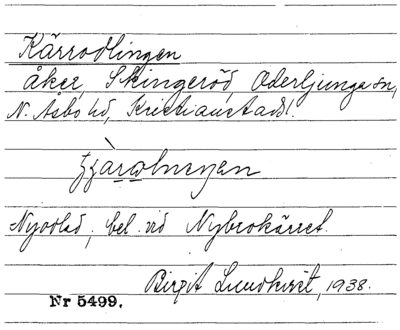 Kärrodlingen
åker, Skingeröd, Oderljunga sn,
N. Åsbo hd, Kristianstads l.
Nyodlad, bel. vid Nybrokärret.
Birgit Lundkvist, 1938.
Nr 5499.